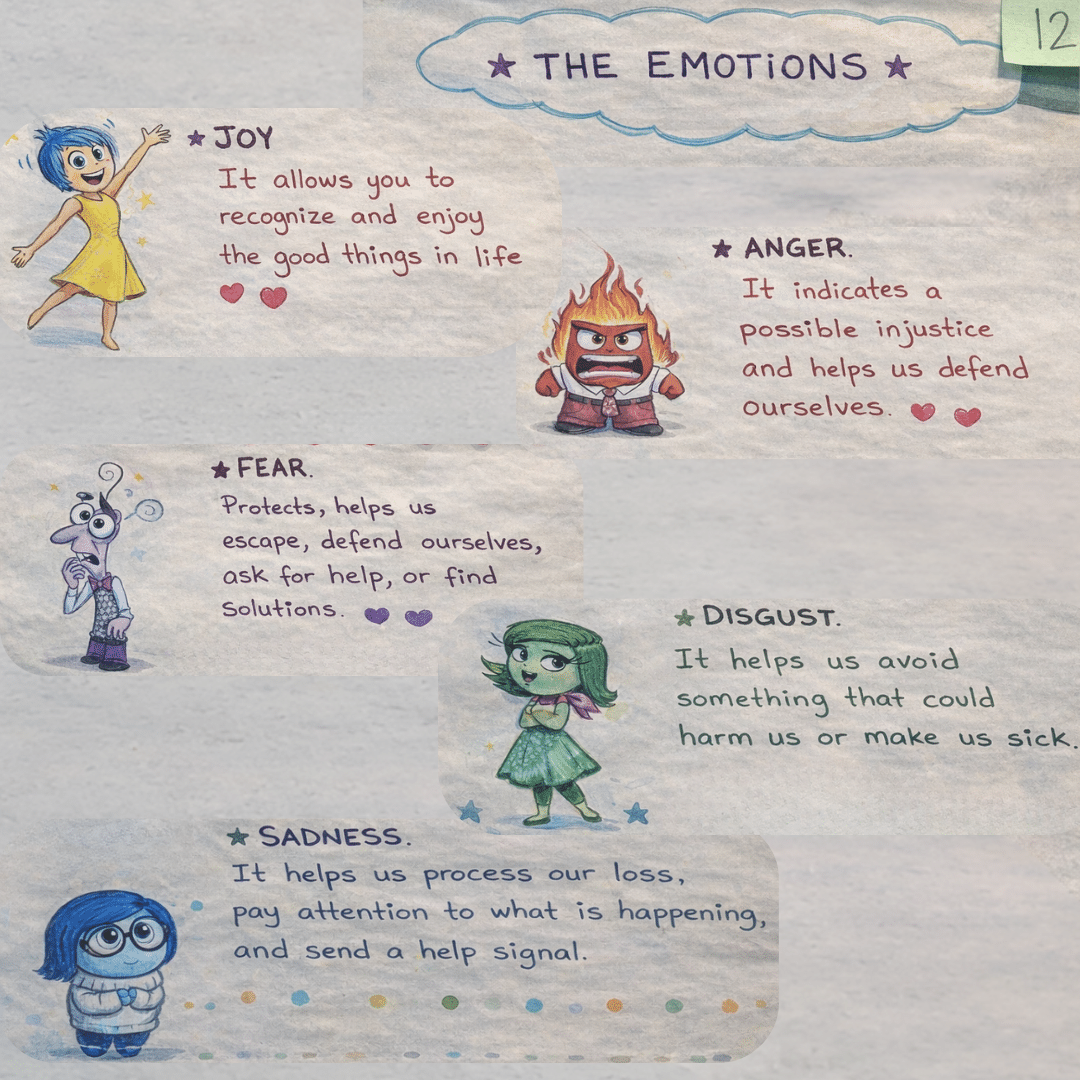 THE EMOTIONS
12
JOY
It allows you to
recognize and enjoy
the good things in life
ANGER.
It indicates a
possible injustice
and helps us defend
ourselves.
FEAR.
Protects, helps us
escape, defend ourselves,
ask for help, or find
solutions.
DISGUST.
It helps us avoid
something that could
harm us or make us sick.
SADNESS.
It helps us process our loss,
pay attention to what is happening,
and send a help signal.